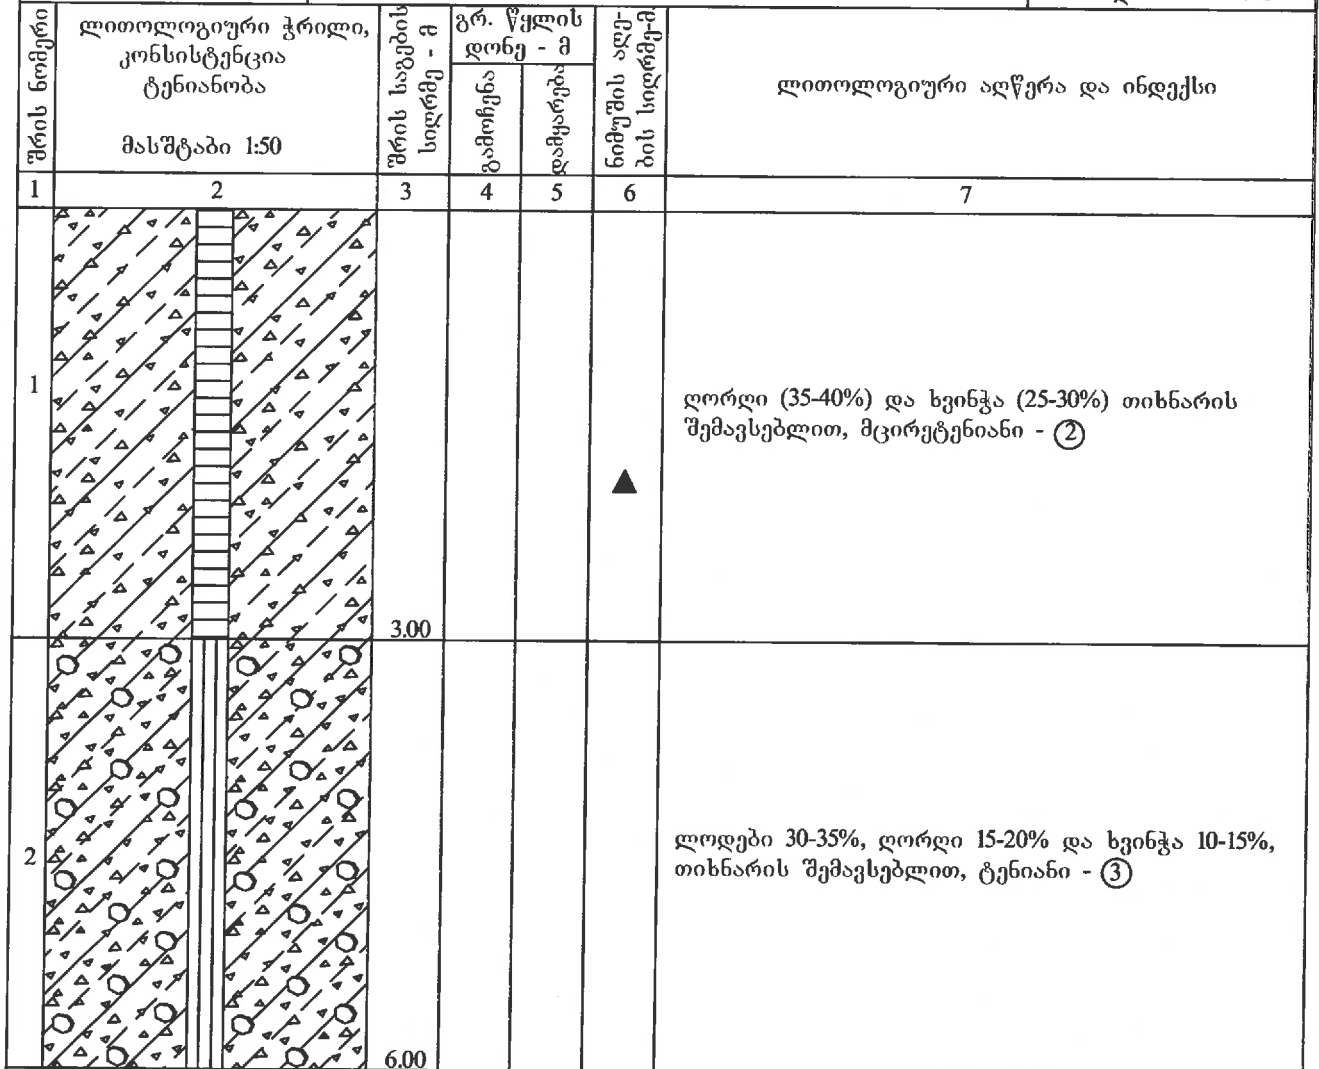 შრის ნომერი
ლითოლოგიური ჭრილი,
კონსისტენცია
ტენიანობა
მასშტაბი 1:50
შრის საგების
სიღრმე - მ
გრ. წყლის
დონე - მ
გამოჩენა
დამყარება
ნიმუშის აღე-
ბის სიღრმე-მ
ლითოლოგიური აღწერა და ინდექსი
1 2 3 4 5 6 7
1
ღორღი (35-40%) და ხვინჭა (25-30%) თიხნარის
შემავსებლით, მცირეტენიანი - 2
3.00
2
ლოდები 30-35%, ღორღი 15-20% და ხვინჭა 10-15%,
თიხნარის შემავსებლით, ტენიანი - 3
6.00